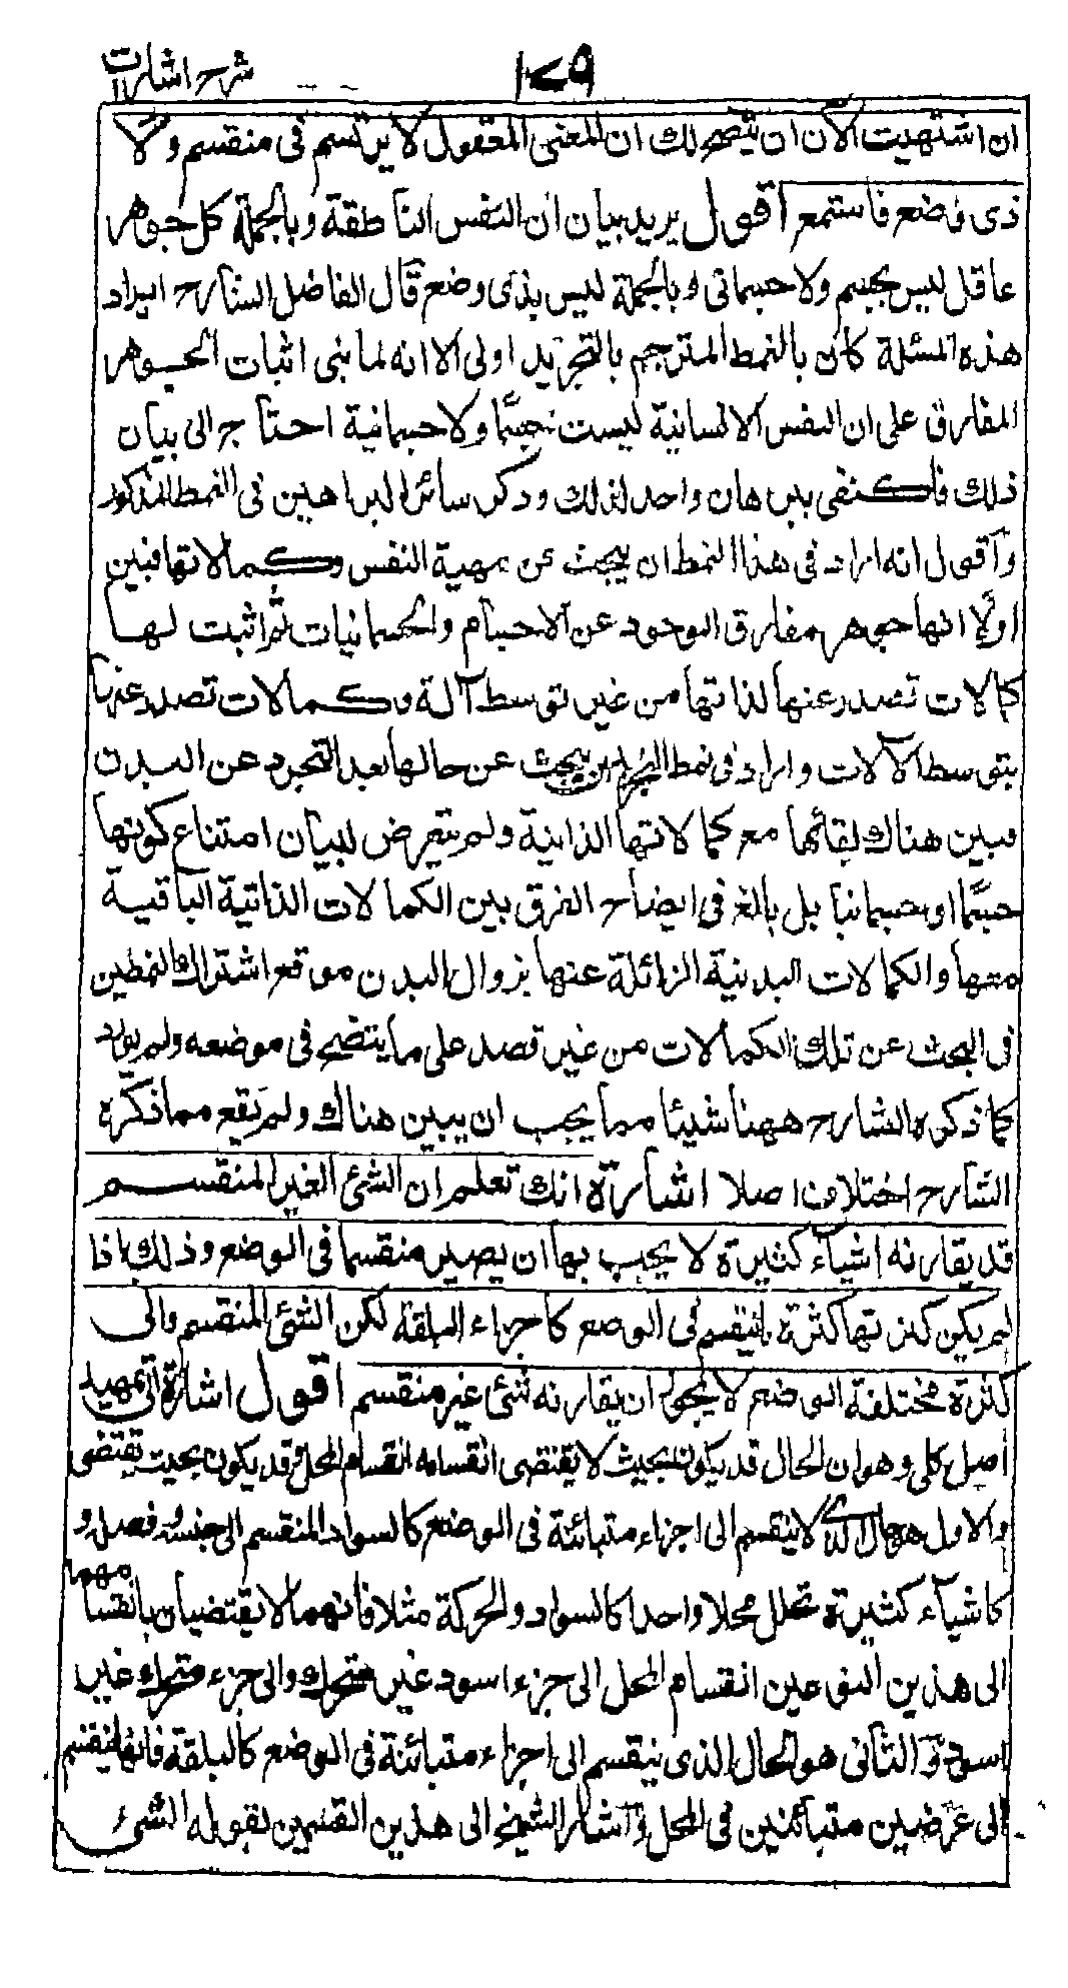 شرح اشارات
١٧٩
ان اشتهيت الآن ان يتضح لك ان المعنى المعقول لا يرتسم فى منقسم ولا
ذى وضع فاستمع اقول يريد بيان ان النفس الناطقة وبالجملة كل جوهر
عاقل ليس بجسم ولا جسمانى وبالجملة ليس بذى وضع قال الفاضل الشارح ايراد
هذه المسئلة كان بالنمط المترجم بالتجريد اولى الا انه لما بنى اثبات الجوهر
المفارق على ان النفس الانسانية ليست بجسم ولا جسمانية احتاج الى بيان
ذلك فاكتفى ببرهان واحد لذلك وذكر سائر البراهين فى النمط المذكور
وآقول انه اراد فى هذا النمط ان يبحث عن مهية النفس وكمالاتها فبين
اولًا انها جوهر مفارق الوجود عن الاجسام والجسمانيات ثم اثبت لها
كمالات تصدر عنها لذاتها من غير توسط آلة وكمالات تصدر عنها
بتوسط الآلات واراد فى نمط التجريد ان يبحث عن حالها بعد التجرد عن البدن
فبين هناك بقائها مع كمالاتها الذاتية ولم يتعرض لبيان امتناع كونها
جسمًا او جسمانيا بل بالغ فى ايضاح الفرق بين الكمالات الذاتية الباقية
معها والكمالات البدنية الزائلة عنها بزوال البدن موقع اشتراك النمطين
فى البحث عن تلك الكمالات من غير قصد على ما يتضح فى موضعه ولم يورد
كما ذكره الشارح ههنا شيئا مما يجب ان يبين هناك ولم يقع مما ذكره
الشارح اختلاف اصلا اشارة انك تعلم ان الشئ الغير المنقسم
قد يقارنه اشياء كثيرة لا يجب بها ان يصير منقسما فى الوضع وذلك اذا
لم يكن كثرتها كثرة ما ينقسم فى الوضع كاجزاء البلقة لكن الشئ المنقسم الى
كثرة مختلفة الوضع لا يجوز ان يقارنه شئ غير منقسم اقول اشارة الى تمهيد
اصل كلى وهو ان الحال قد يكون بحيث لا يقتضى انقسامه انقسام المحل وقد يكون بحيث يقتضى
والاول هو الحال الذى لا ينقسم الى اجزاء متبائنة فى الوضع كالسواد المنقسم الى جنسه وفصله و
كاشياء كثيرة تحل محلا واحدا كالسواد والحركة مثلا فانهما لا يقتضيان بانقسامهما
الى هذين النوعين انقسام المحل الى جزء اسود غير متحرك والى جزء متحرك غير
اسود والثانى هو الحال الذى ينقسم الى اجزاء متبائنة فى الوضع كالبلقة فانها تنقسم
الى عرضين متبائنين فى المحل وآشار الشيخ الى هذين القسمين بقوله الشئ